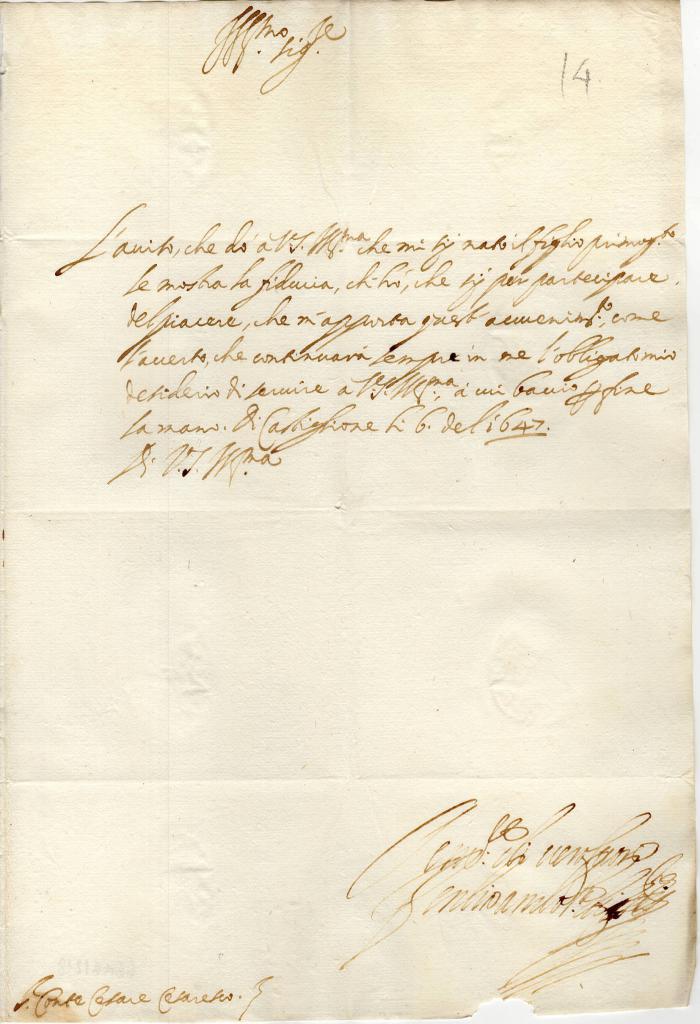 Ill.mo Sig.re
14
L'auiso, che dò a V.S. Ill.ma che mi sij nato il figlio primog.to
le mostra la fiducia, ch'hò, che sij per partecipare
del piacere, che m'apporta quest'auuenim.to, come
l'accerto, che continuarà sempre in me l'obligato mio
desiderio di seruire a V.S. Ill.ma, à cui bacio p fine
la mano. Di Castiglione li 6. del 1647.
Di V.S. Ill.ma
S. Conte Cesare Cesaresco.